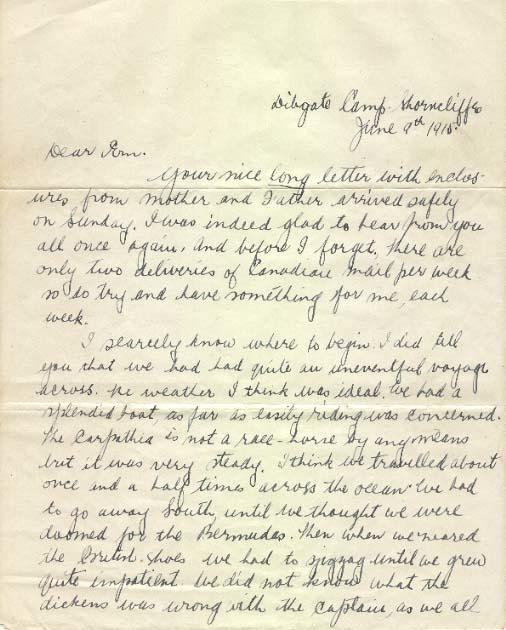 Dibgate Camp. Shorncliffe
June 9th 1915.
Dear Pem.
Your nice long letter with enclos-
ures from mother and Father arrived safely
on Sunday. I was indeed glad to hear from you
all once again, and before I forget, there are
only two deliveries of Canadian mail per week
so do try and have something for me, each
week.
I scarcely know where to begin. I did tell
you that we had had quite an uneventful voyage
across. The weather I think was ideal. We had a
splendid boat, as far as easily riding was concerned.
The Carpathia is not a race-horse by any means
but it was very steady. I think we travelled about
once and a half times across the ocean. We had
to go away South, until we thought we were
doomed for the Bermudas. Then when we neared
the British Shoes we had to zigzag until we grew
quite impatient. We did not know what the
dickens was wrong with the Captain, as we all